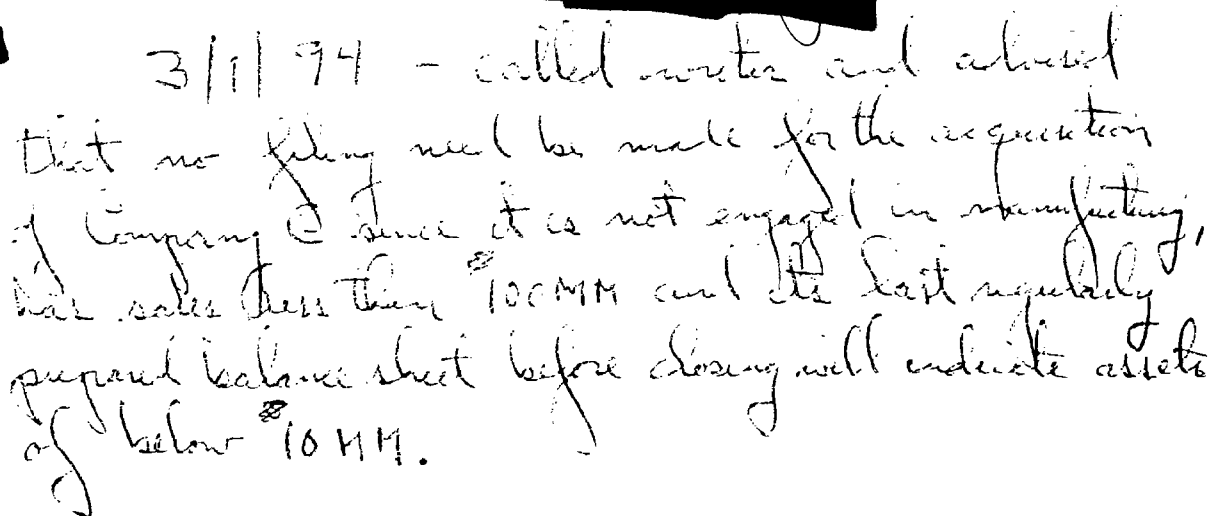 3/1/94 - called writer and advised
that no filing need be made for the acquisition
of Company C since it is not engaged in manufacturing,
has sales less than $100MM and its last regularly
prepared balance sheet before closing will indicate assets
of below $10 MM.